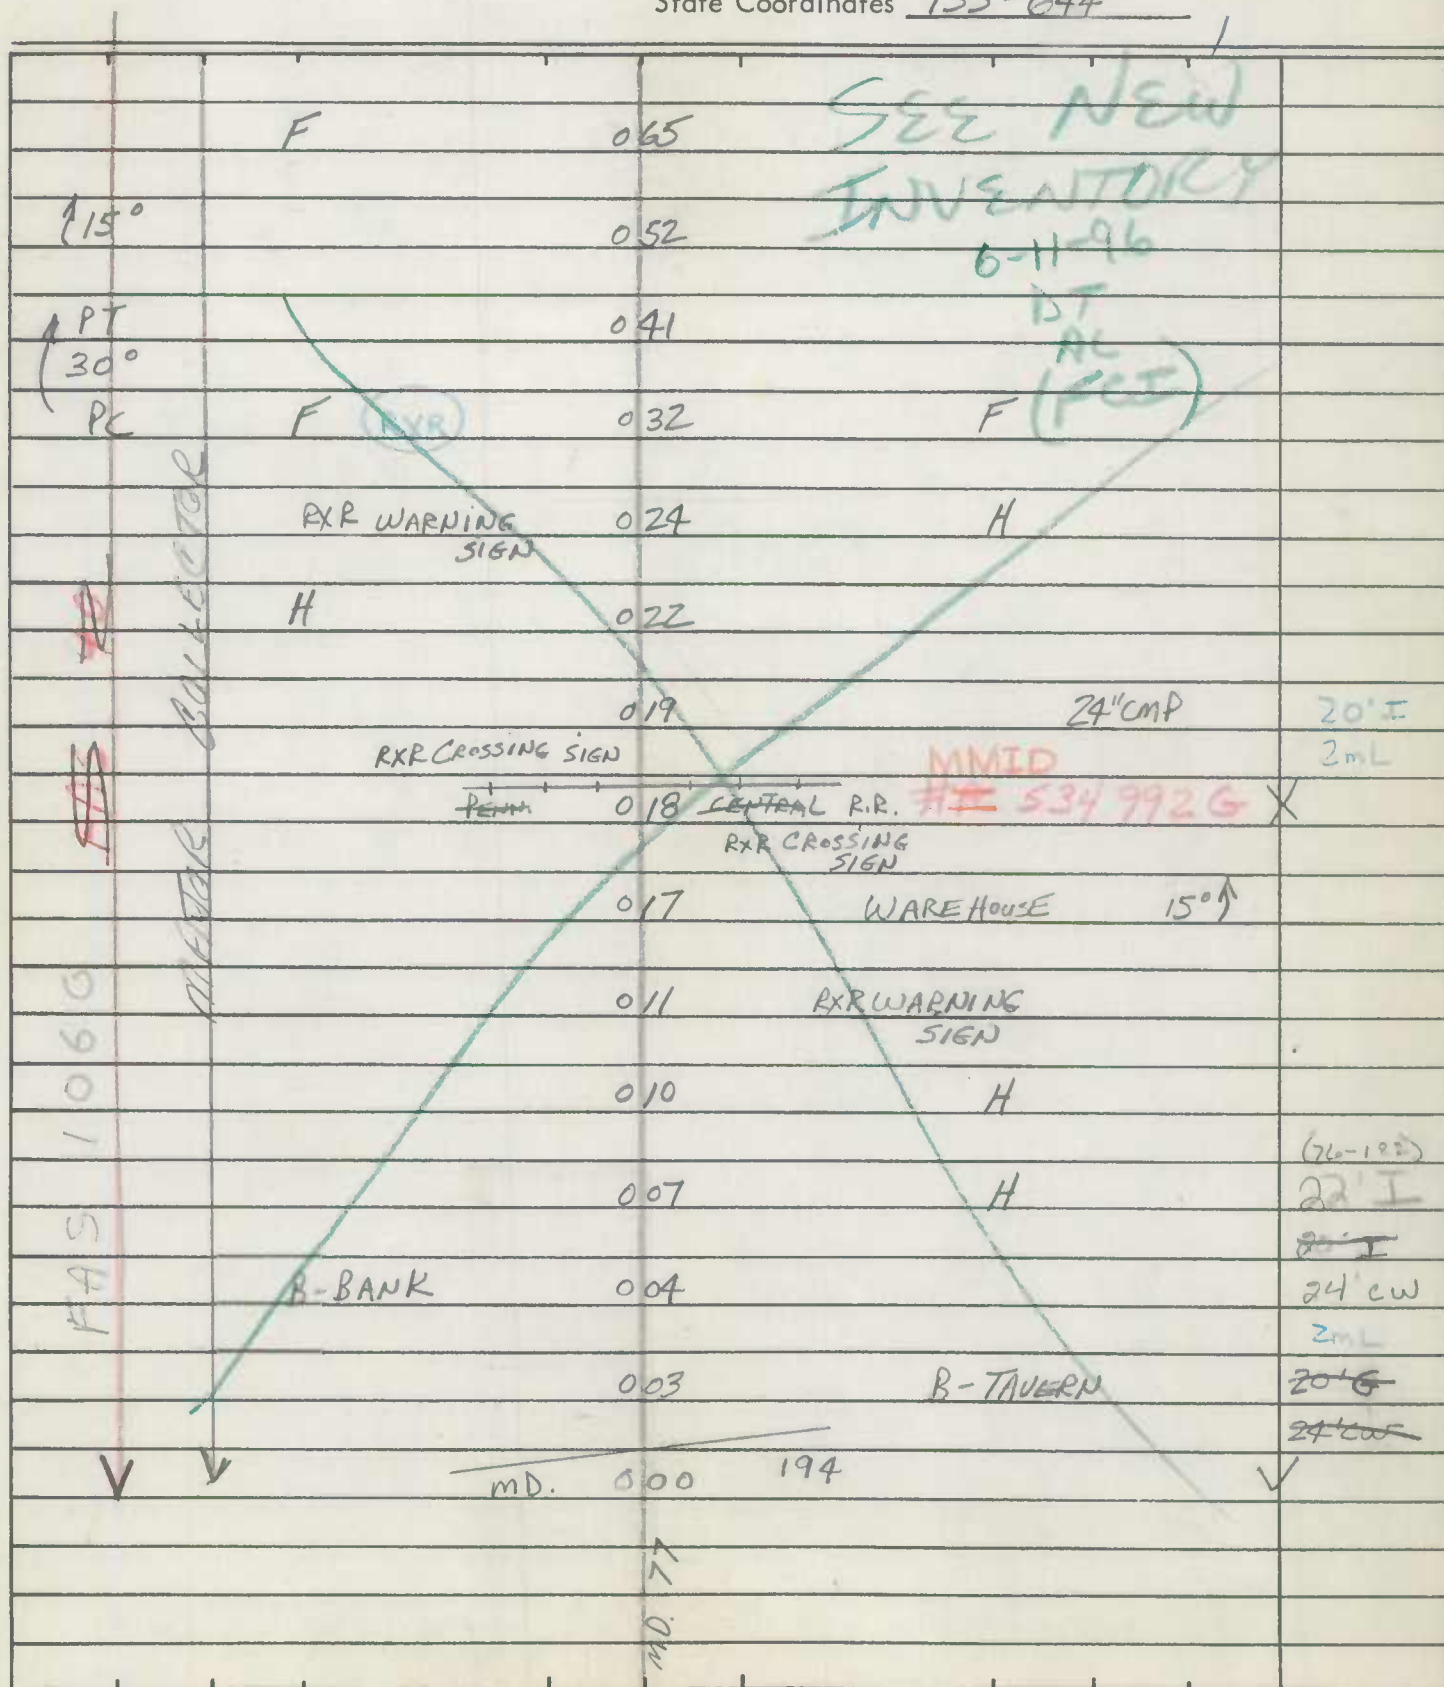 State Coordinates 155-644
SEE NEW
INVENTORY
6-11-96
DT
AC
(FCI)
F 0 65
15° 0 52
PT 0 41
30°
PC F RXR 0 32 F
RXR WARNING 0 24 H
SIGN
H 0 22
0 19 24" CMP 20' I
2mL
RXR CROSSING SIGN MMID
PENN 0 18 CENTRAL R.R. # 534 992 G X
RXR CROSSING
SIGN
0 17 WAREHOUSE 15°
0 11 RXR WARNING
SIGN
0 10 H
0 07 H 22' I
20' I
B-BANK 0 04 24' CW
2mL
0 03 B-TAVERN 20' G
24' CW
MD. 0 00 194
MD. 77
FAS 1060
COLLECTOR